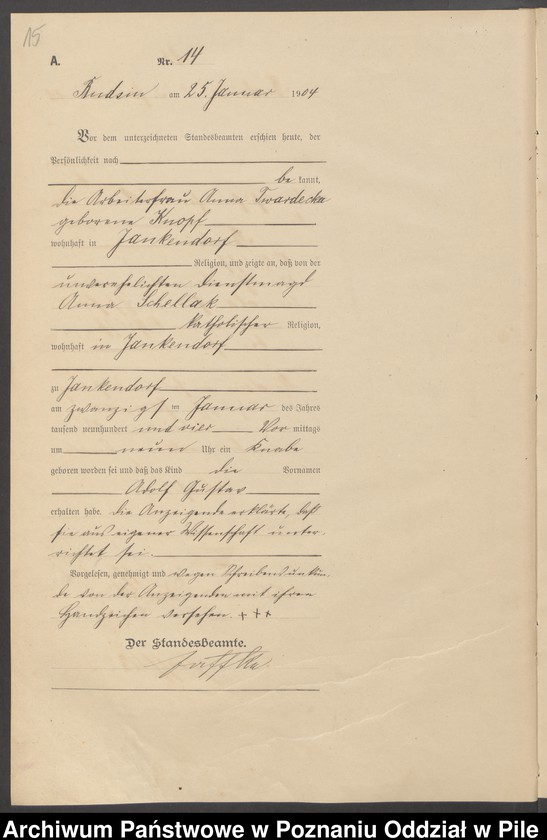 15
A. Nr. 14
Rudsin am 25. Januar 1904
Vor dem unterzeichneten Standesbeamten erschien heute, der
Persönlichkeit nach
be kannt,
die Arbeiterfrau Anna Twardecka
geborene Knopf
wohnhaft in Jankendorf
Religion, und zeigte an, daß von der
unverehelichten Dienstmagd
Anna Schellak
katholischer Religion,
wohnhaft in Jankendorf
zu Jankendorf
am zwanzigst en Januar des Jahres
tausend neunhundert und vier Vor mittags
um neun Uhr ein Knabe
geboren worden sei und daß das Kind die Vornamen
Adolf Gustav
erhalten habe. Die Anzeigende erklärte, daß
sie aus eigener Wissenschaft unter-
richtet sei.
Vorgelesen, genehmigt und wegen Schreibensunkun-
de von der Anzeigenden mit ihren
Handzeichen versehen. +++
Der Standesbeamte.
Archiwum Państwowe w Poznaniu Oddział w Pile